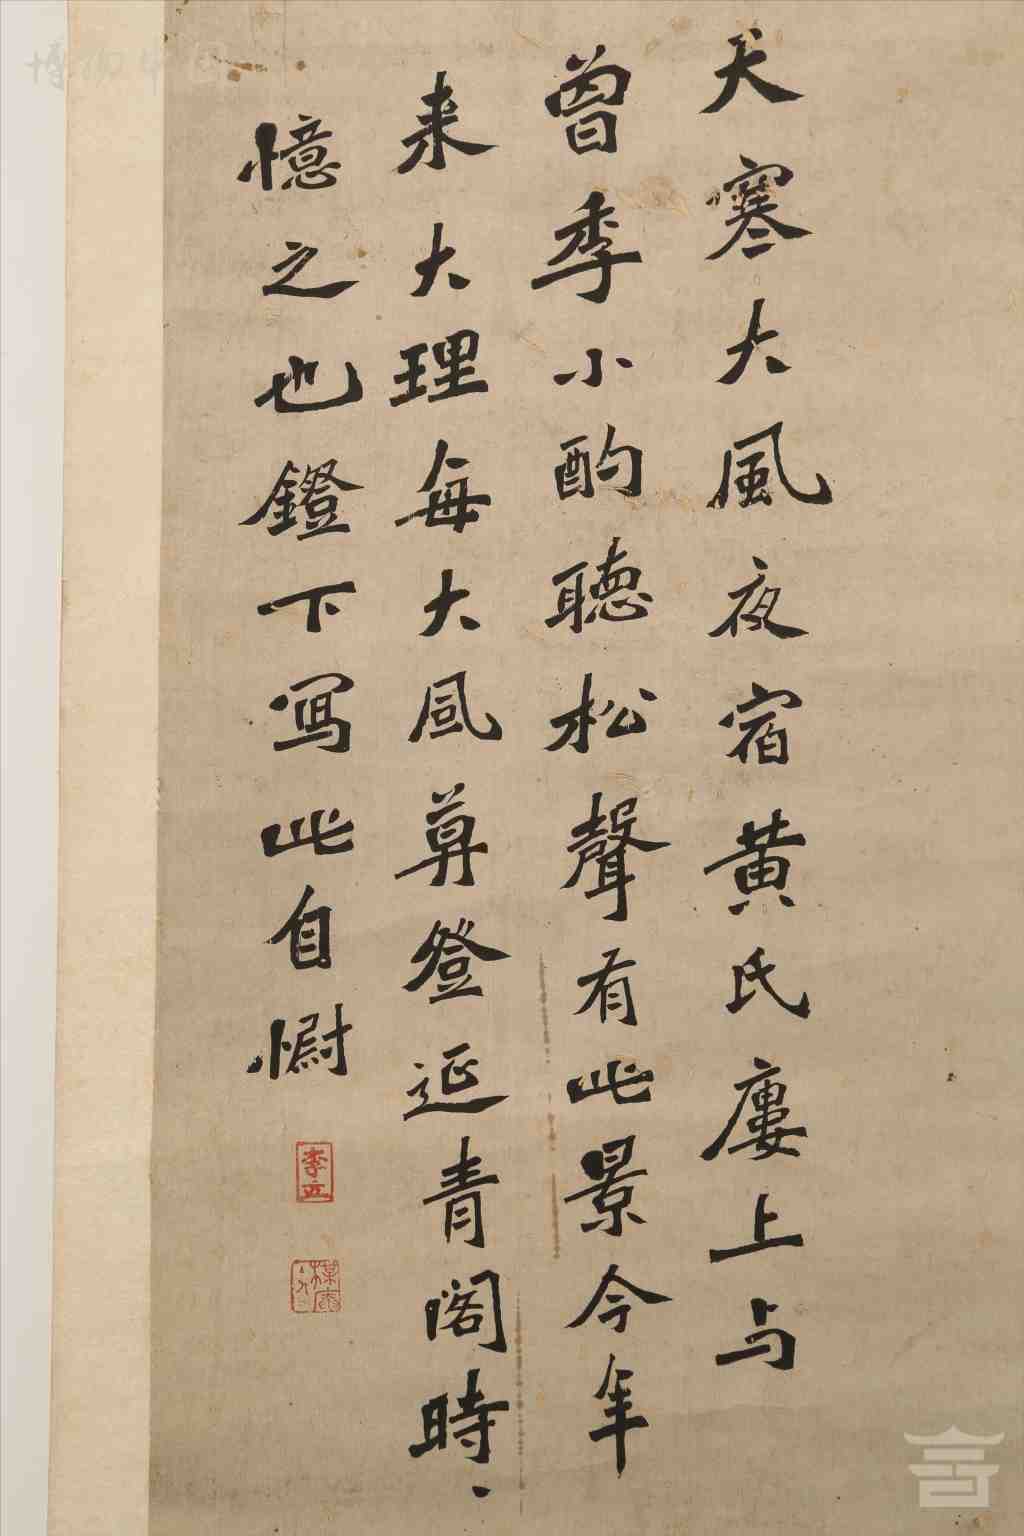 天寒大風夜宿黄氏廔上与
曾季小酌聽松聲有此景今年
来大理每大風算登延青阁時、
憶之也鐙下写此自慰
李立
博物中国